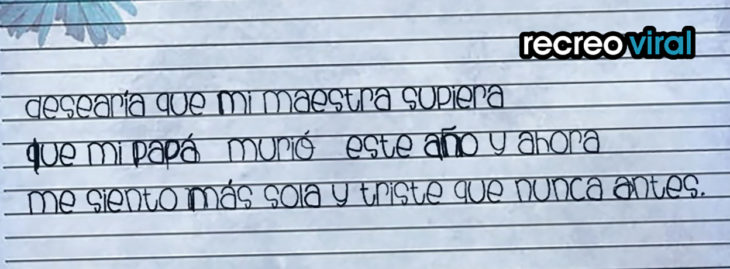 recreo viral
desearía que mi maestra supiera
que mi papá murió este año y ahora
me siento más sola y triste que nunca antes.